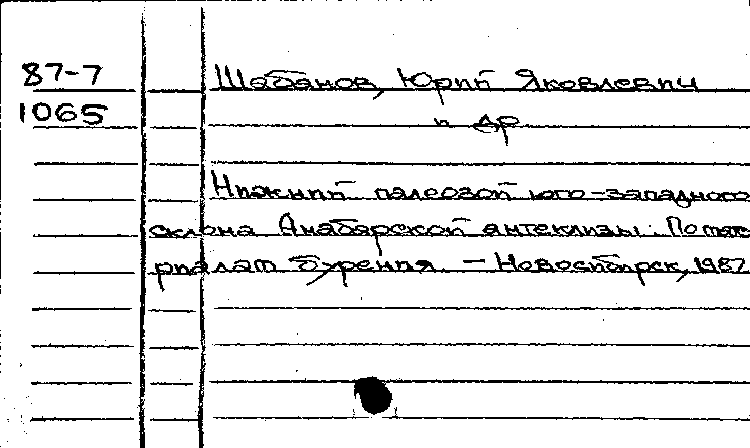 87-7
Шабанов, Юрий Яковлевич
1065
и др
Нижний палеозой юго-западного
склона Анабарской антеклизы: По мате
риалам бурения. - Новосибирск, 1987